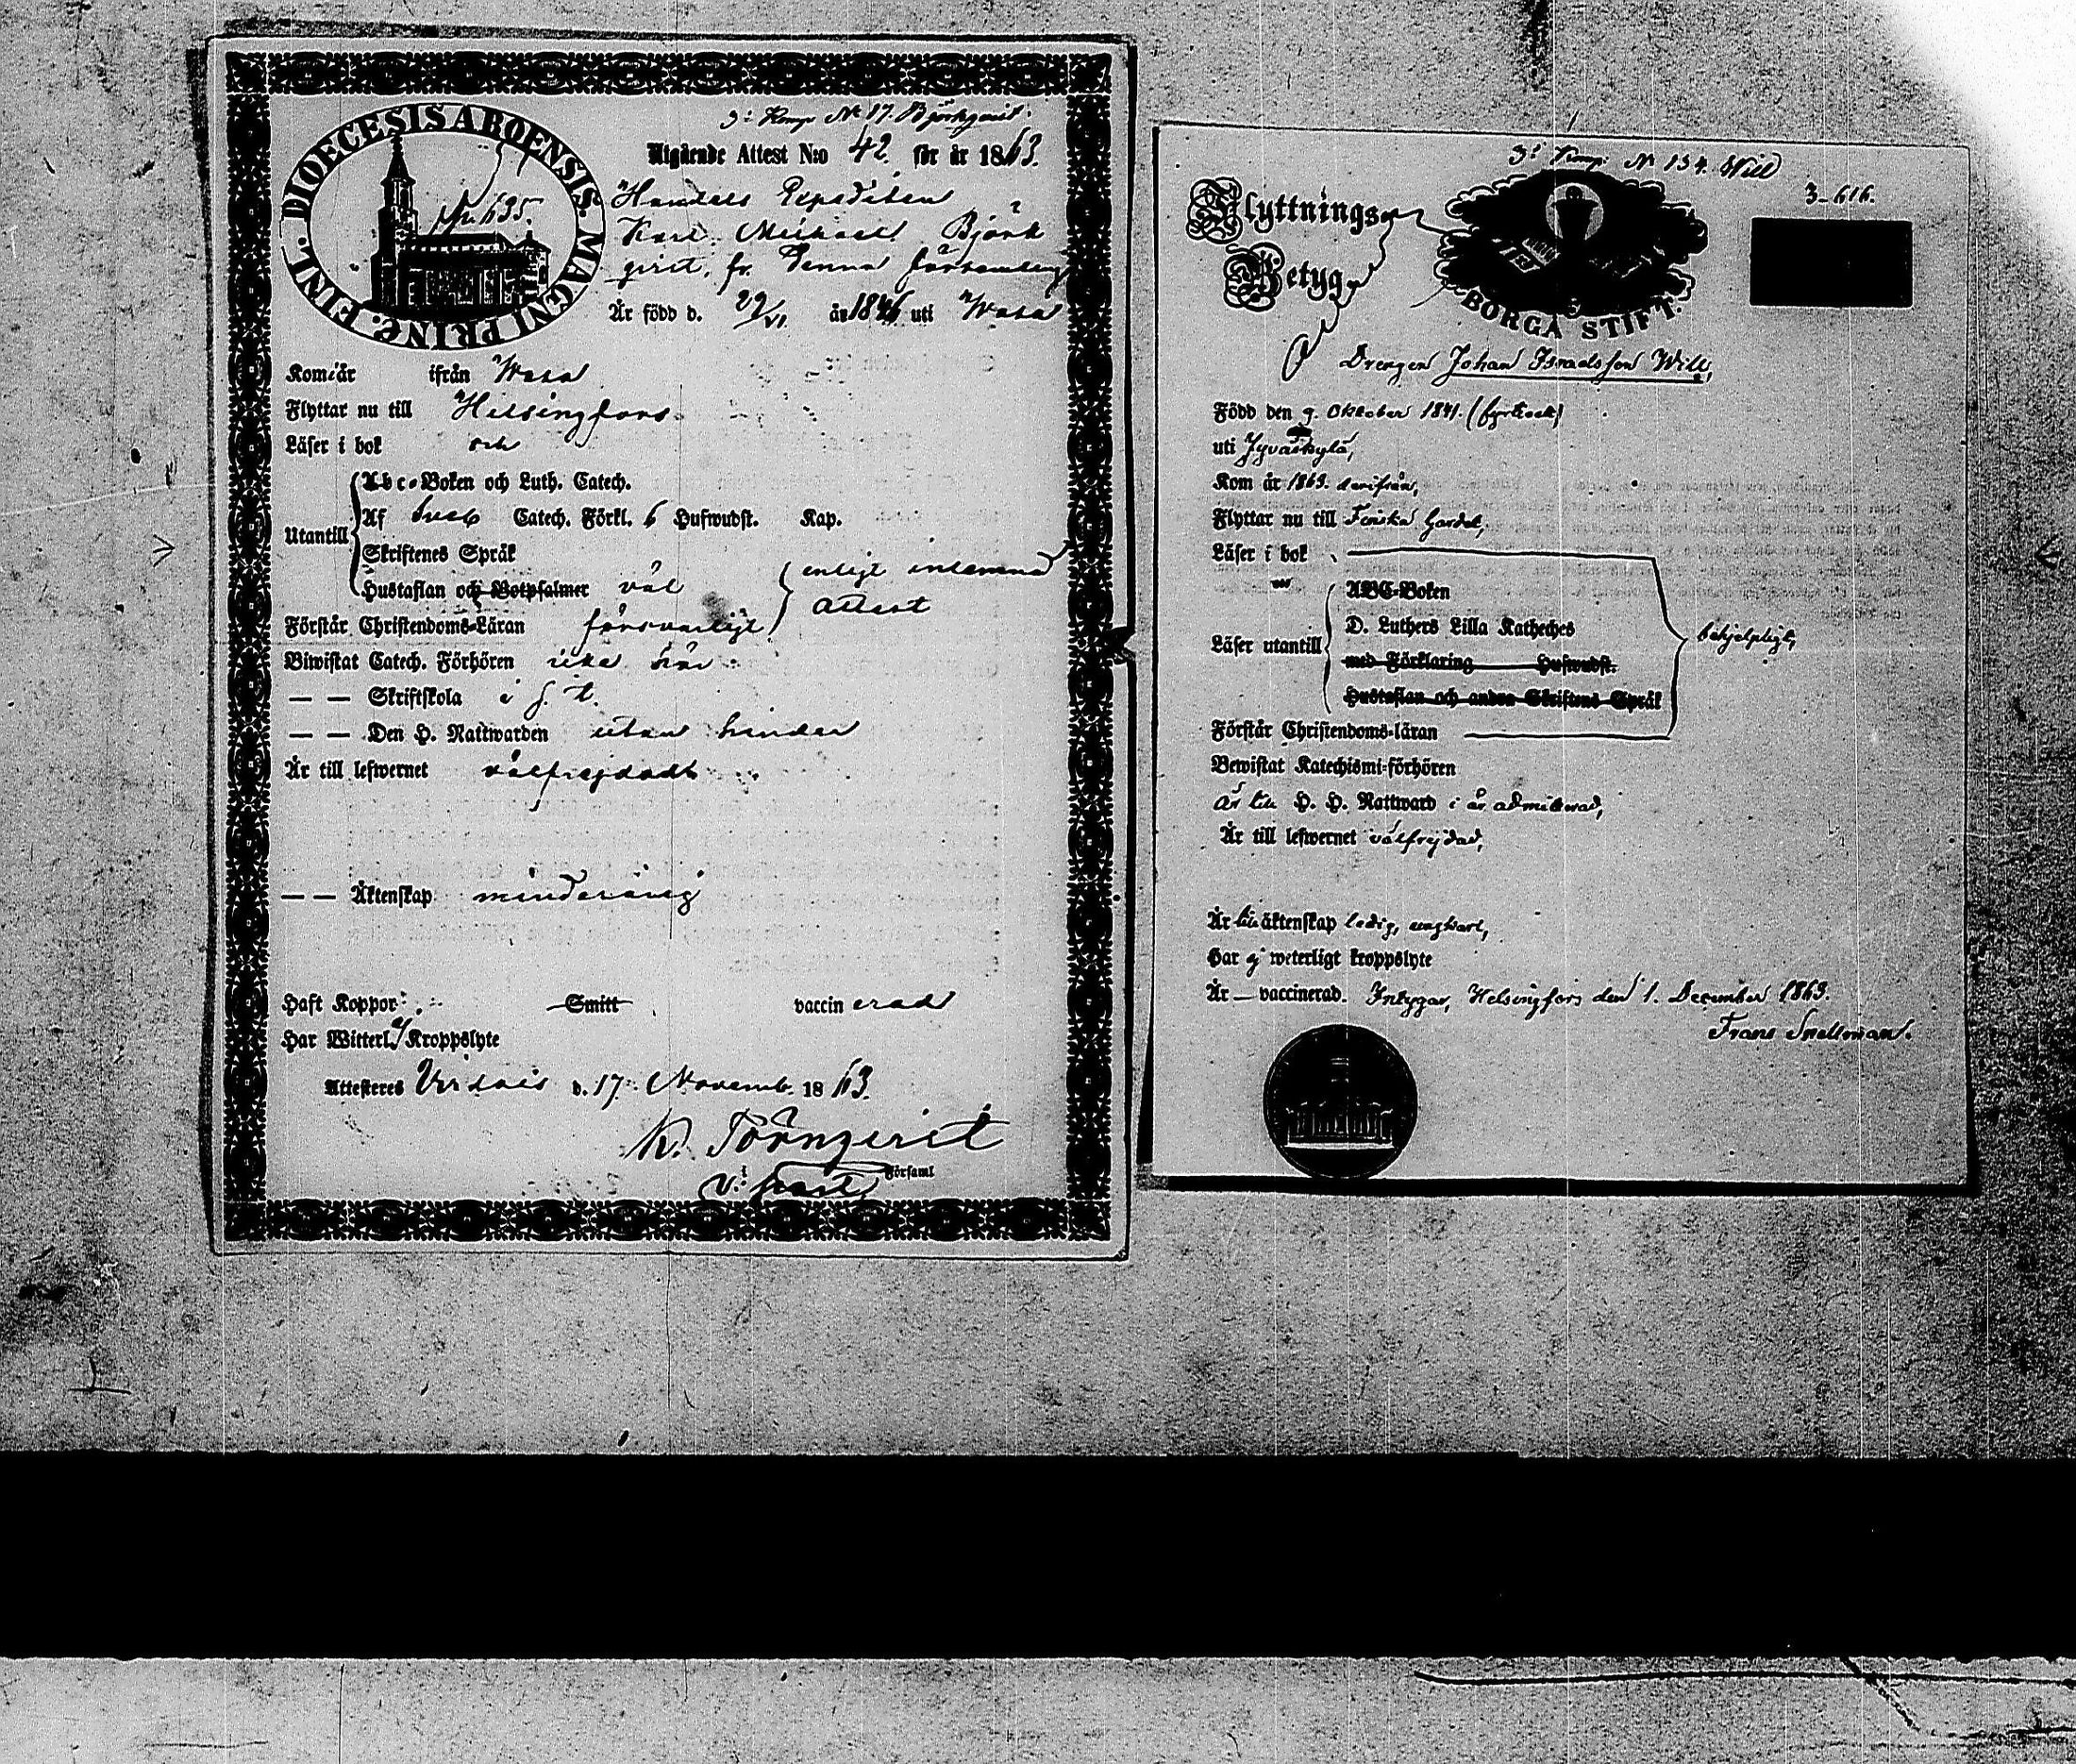 3:e Komp. N:o 17. Björkqvist.
DIOECESIS ABOENSIS. MAGNI PRINC. FINL.
N: 635.
Utgående Attest N:o 42. för år 1863.
Handels Expediten
Karl Michael Björk
qvist, fr. denna församling
Är född d. 29/VI. år 1846 uti Wasa
Kom år ifrån Wasa
Flyttar nu till Helsingfors.
Läser i bok och
Utantill
Abc-Boken och Luth. Catech.
Af Catech. Förkl. 6 Hufwudst. Kap.
Skriftenes Språk
Hustaflan och Botpsalmer väl
enligt inlemnad
attest
Förstår Christendoms-Läran försvarligt
Biwistat Catech. Förhören icke här
— — Skriftskola i s. t.
— — Den H. Nattwarden utan hinder
Är till lefwernet välfrejdadt
— — Äktenskap minderårig
Haft Koppor Smitt vaccinerad
Har Witterl. ej Kroppslyte
Attesteras Virdois d. 17. Novemb. 1863.
K. Törnqvist
v. past. i Församl
3:e Komp. N:o 134. Will
3-616.
Flyttnings-
Betyg
BORGÅ STIFT.
Drengen Johan Israelsson Will,
Född den 9. Oktober 1841. (fyrtioett)
uti Jyväskylä,
Kom år 1863. derifrån,
Flyttar nu till Finska Gardet,
Läser i bok
Läser utantill
ABC-Boken
D. Luthers Lilla Katheches
med Förklaring Hufwudst.
Hustaflan och andra Skriftens Språk
behjelpligt,
Förstår Christendoms-läran
Bewistat Katechismi-förhören
är till H. H. Nattward i år admitterad,
Är till lefwernet välfrejdad,
Är till äktenskap ledig, ungkarl,
Har ej weterligt kroppslyte
Är — vaccinerad. Intygar, Helsingfors den 1. December 1863.
Frans Snellman.